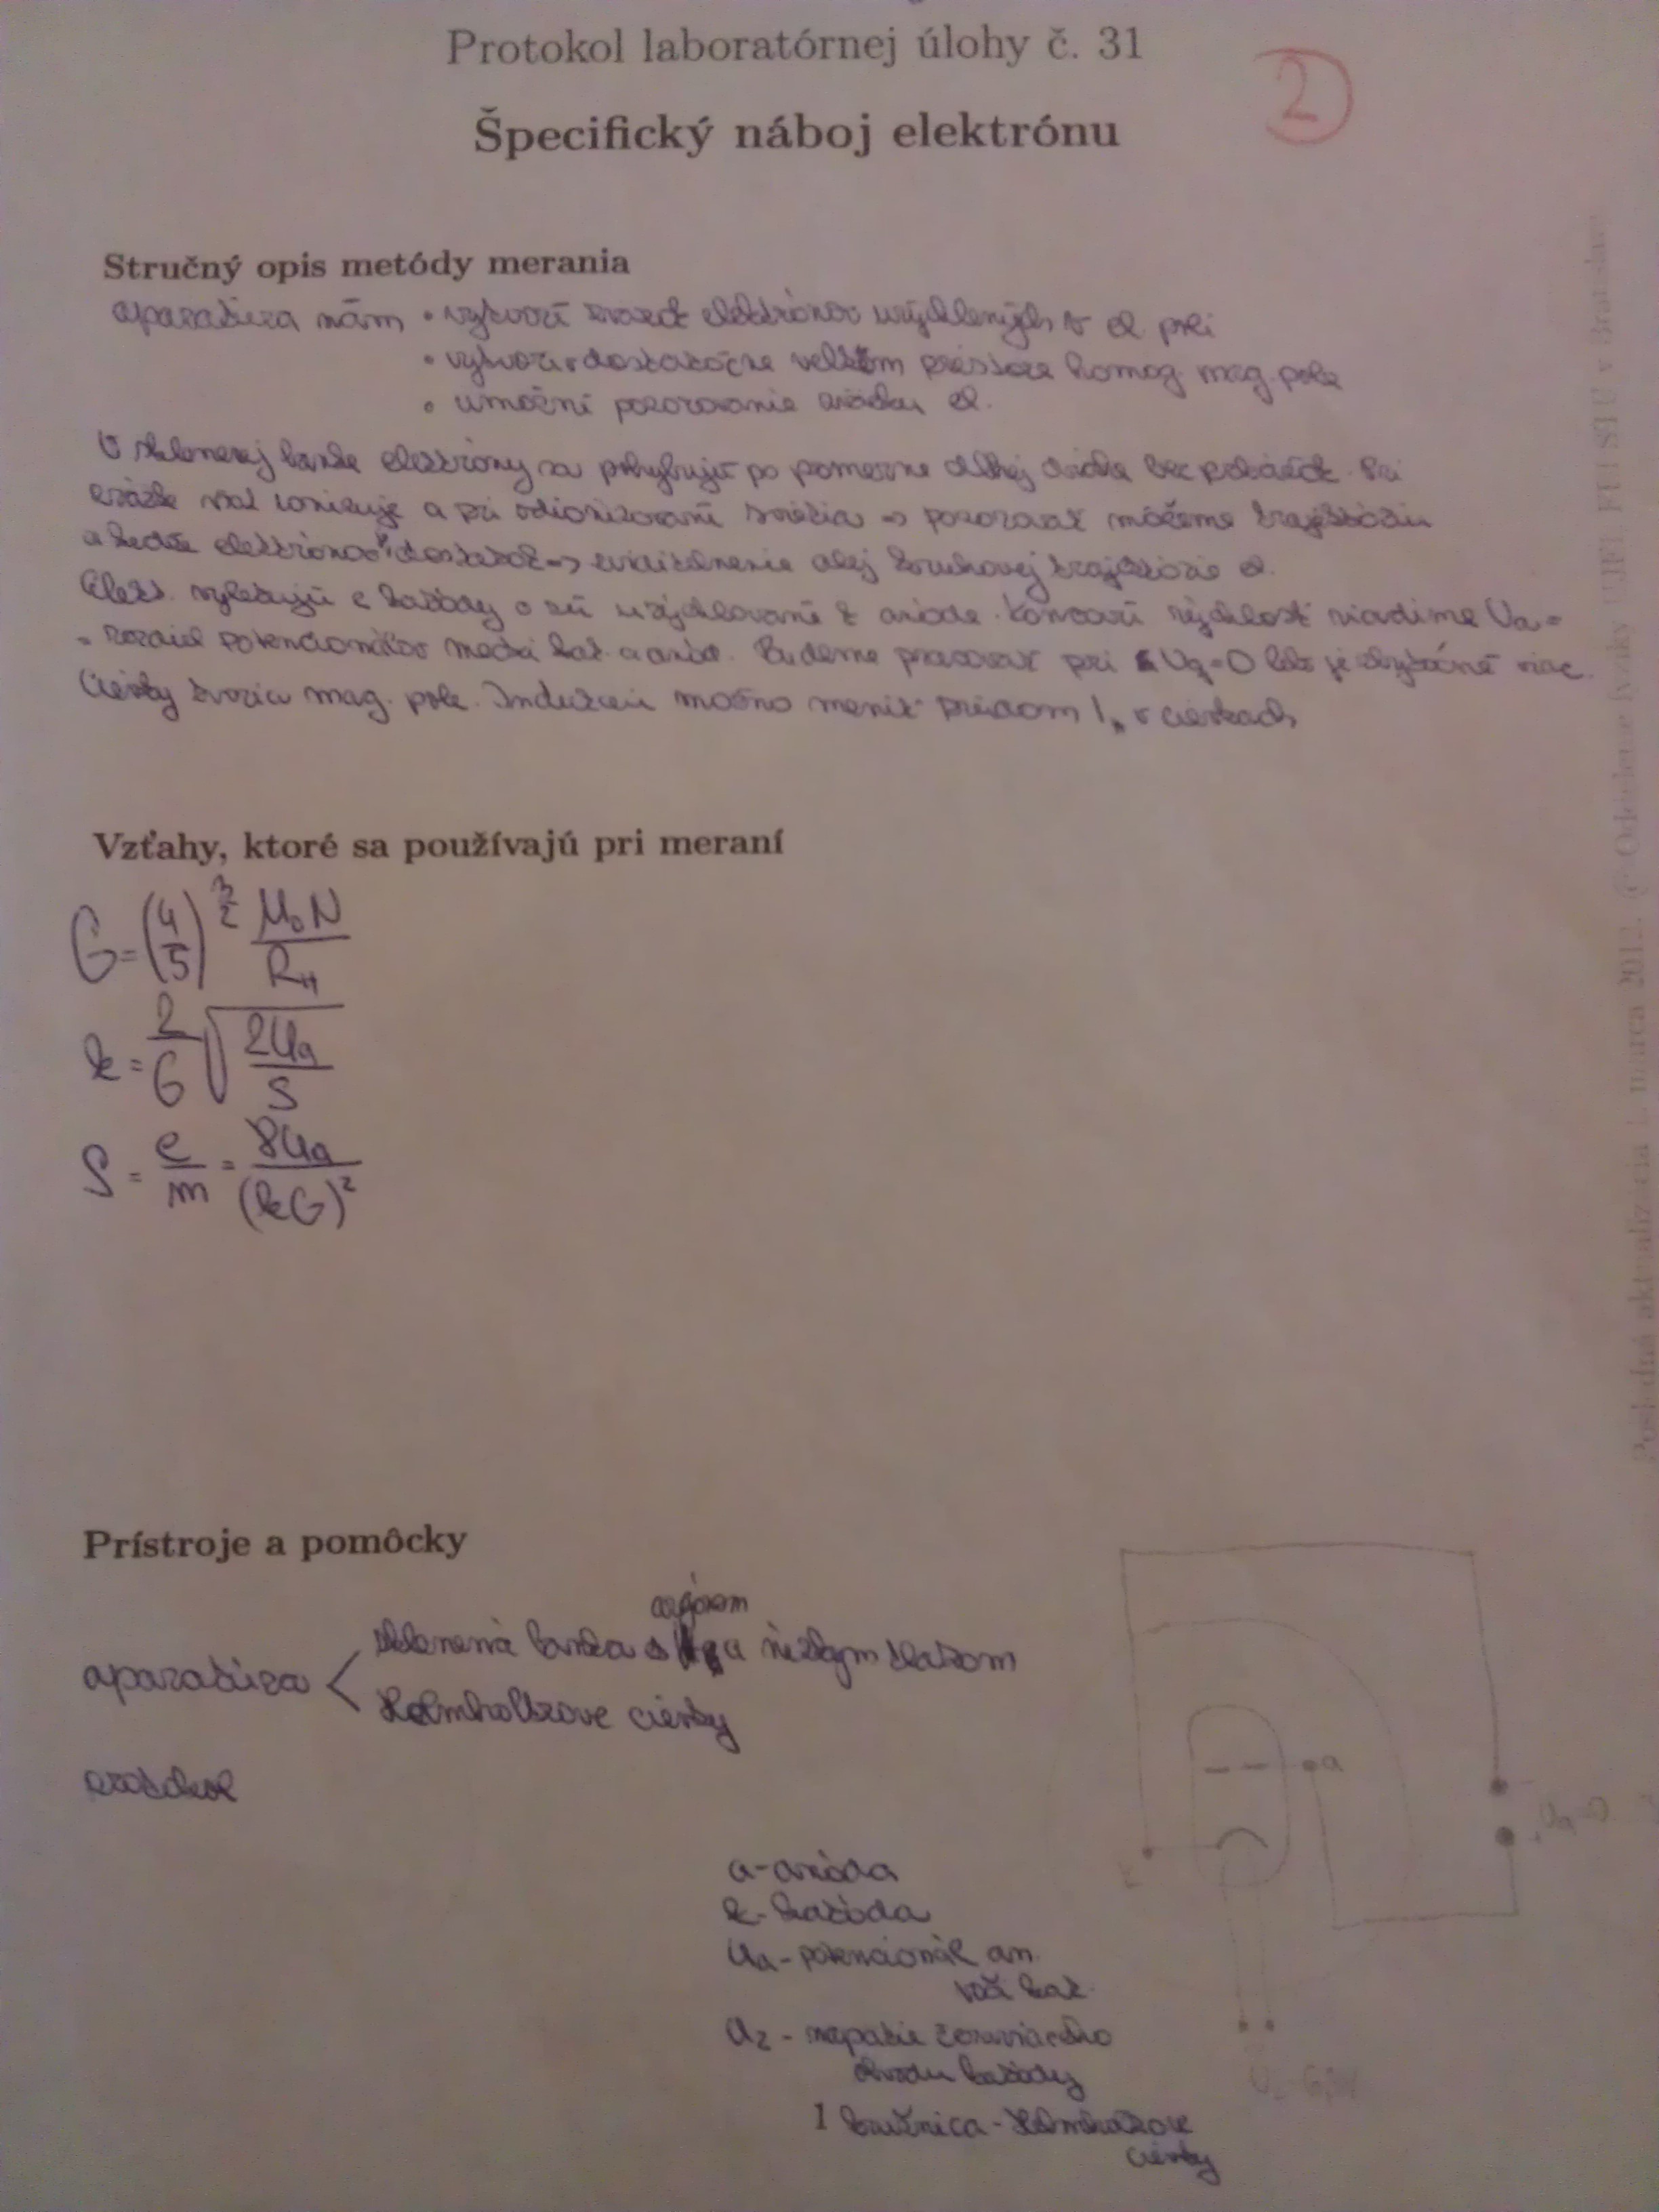 Protokol laboratórnej úlohy č. 31
2
Špecifický náboj elektrónu
Stručný opis metódy merania
aparatúra nám • vytvorí zväzok elektrónov urýchlených v el. poli
• vytvorí v dostatočne veľkom priestore homog. mag. pole
• umožní pozorovanie zväzku el.
V sklenenej banke elektróny sa pohybujú po pomerne dlhej dráhe bez prekážok. Pri
zrážke ionizuje a pri => pozorovať môžeme trajektóriu
a keďže elektrónov dostatok => zviditeľnenie celej kruhovej trajektórie el.
Elekt. vyletujú z katódy a sú urýchľované k anóde. Koncovú rýchlosť riadime Ua =
= rozdiel potencionálov medzi kat. a anód. Budeme pracovať pri = 0 lebo je zbytočné viac.
Cievky tvoria mag. pole. Indukciu možno meniť prúdom I v cievkach
Vzťahy, ktoré sa používajú pri meraní
G = (4/5)^3/2 μ₀N/R_H
k = 2/G √(2Ua/S)
S = e/m = 8Ua/(kG)²
Prístroje a pomôcky
argónom
sklenená banka s a nízkym tlakom
aparatúra <
Helmholtzove cievky
a
Ua
k
a - anóda
k - katóda
Ua - potencionál an.
voči kat.
Uz - napätie žeraviaceho
obvodu katódy
1 kružnica - Helmholtzove
cievky
Posledná aktualizácia 1. marca 2012. © Oddelenie fyziky ÚJFI, FEI STU v Bratislave